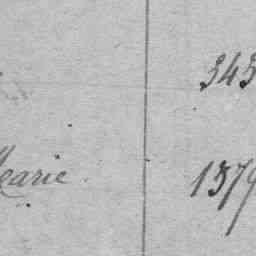 343
Marie 1379